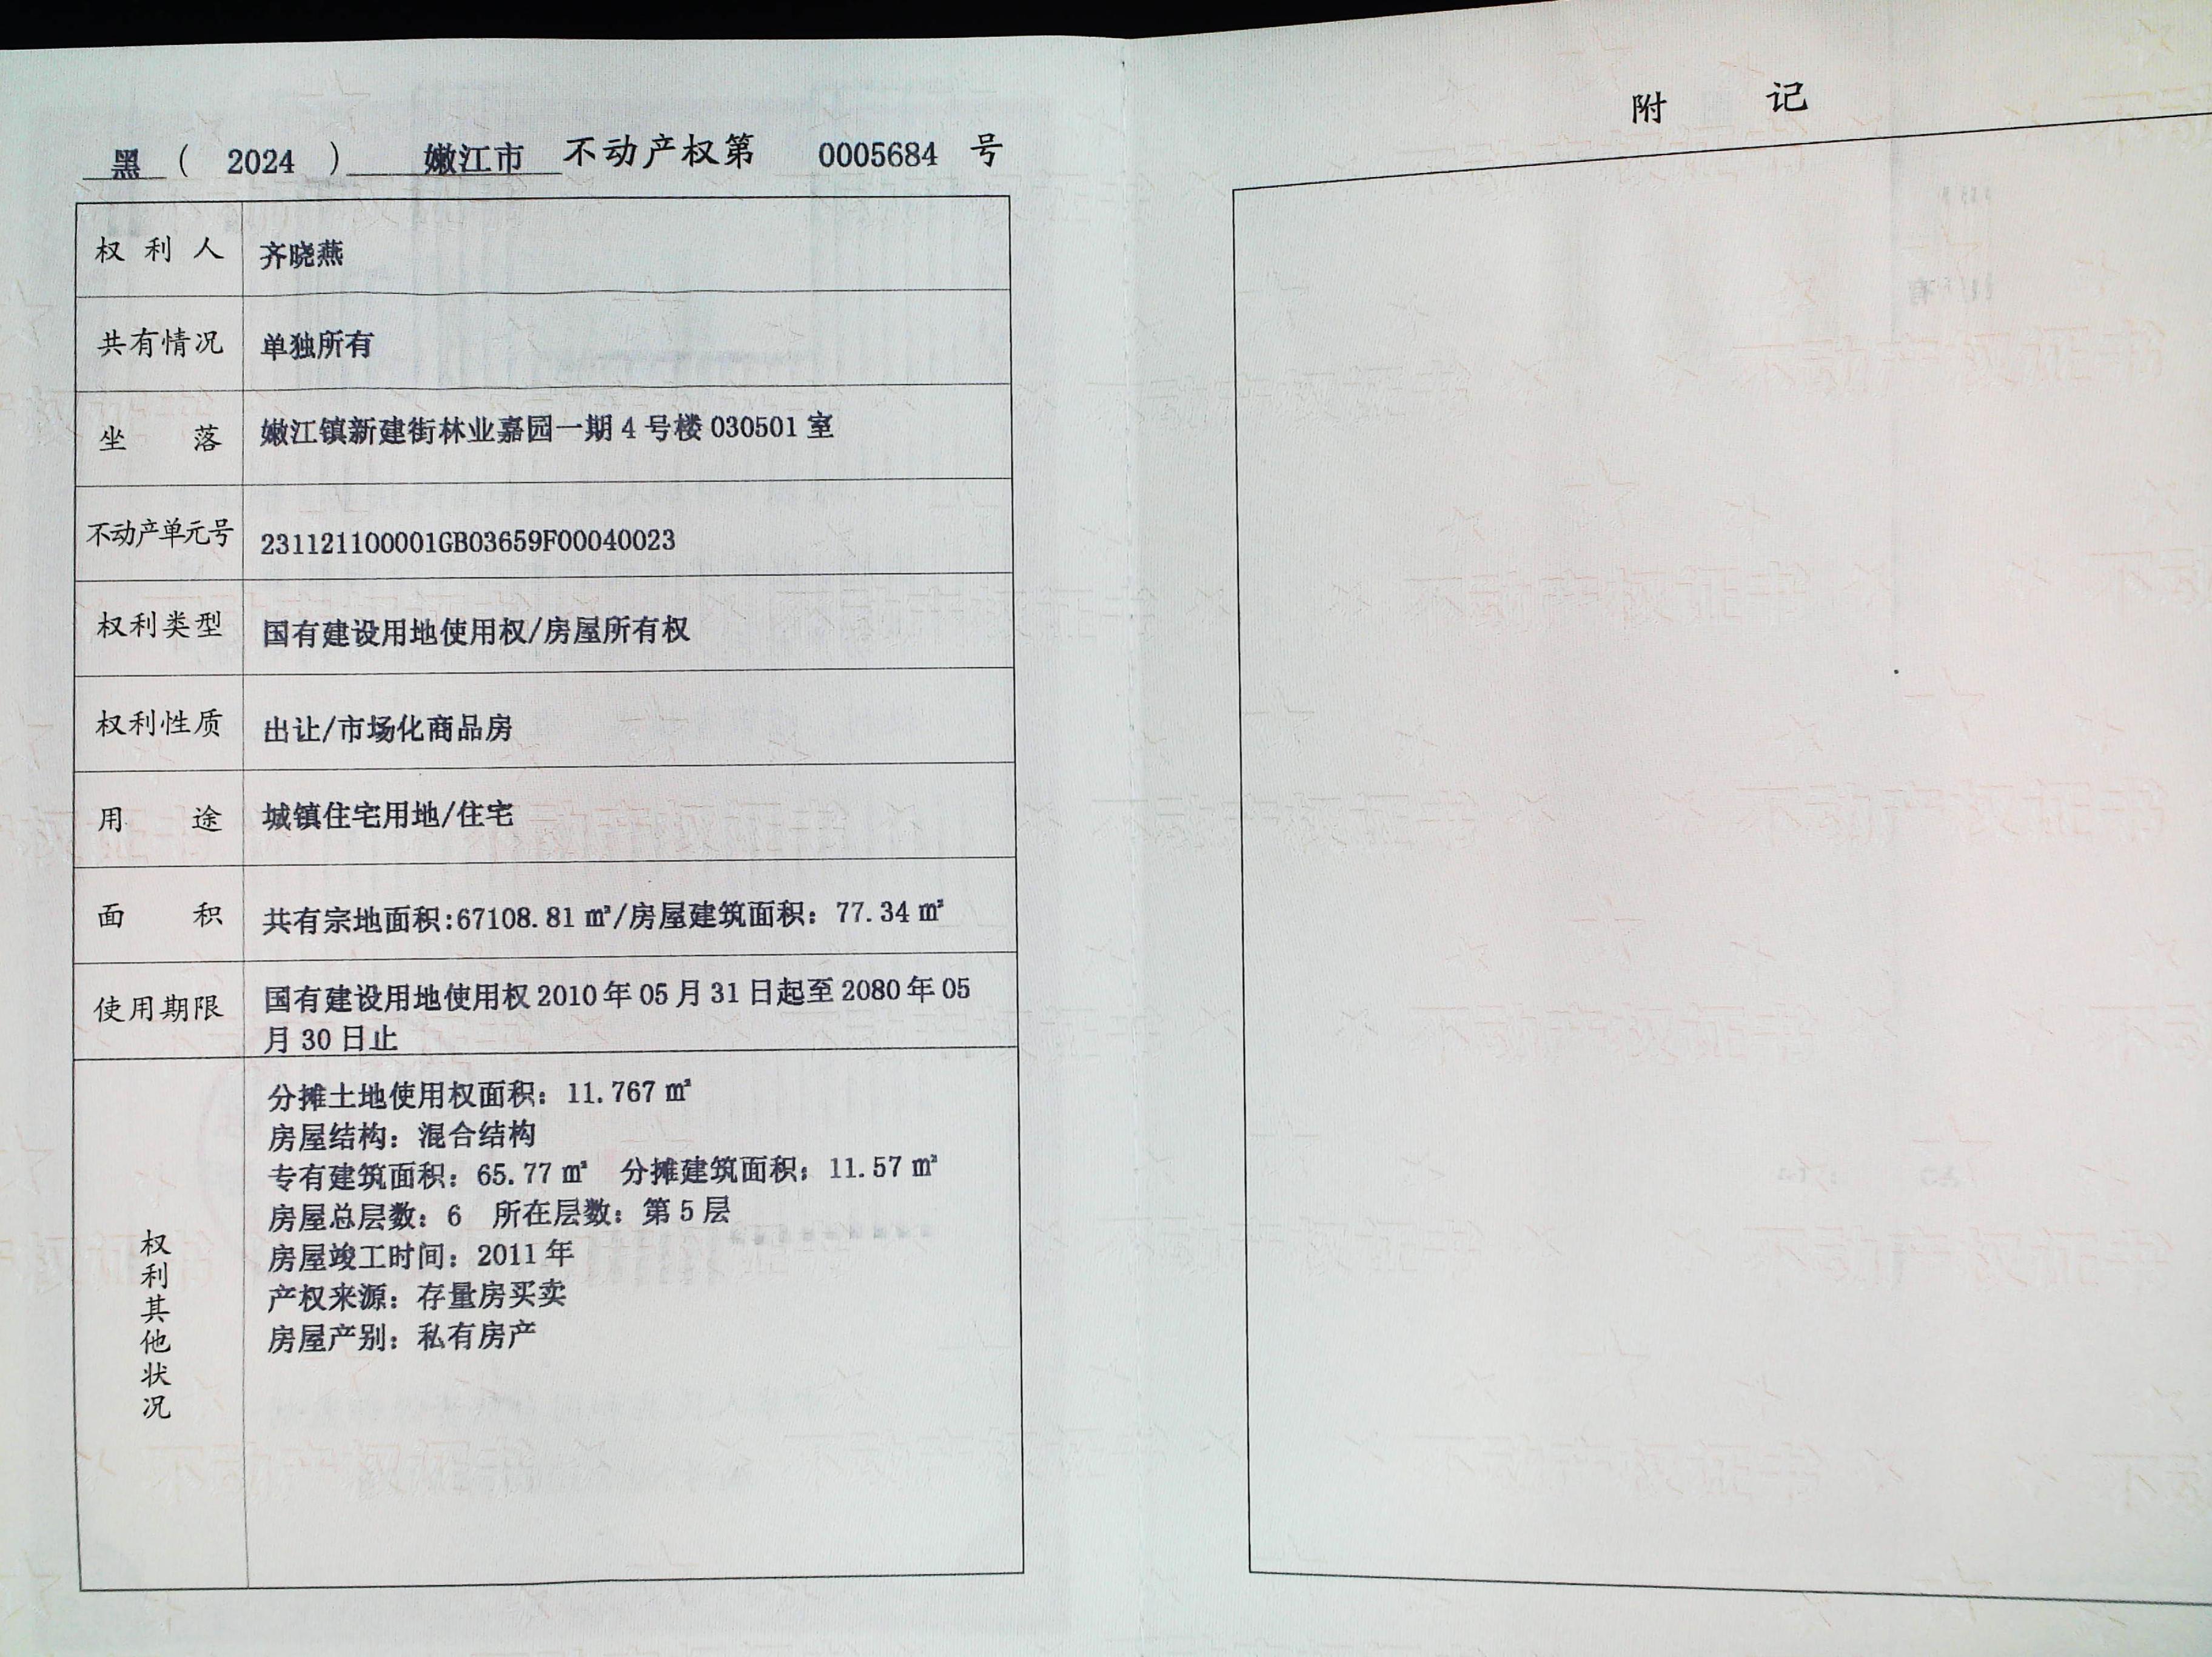 黑 ( 2024 ) 嫩江市 不动产权第 0005684 号
权利人 齐晓燕
共有情况 单独所有
坐落 嫩江镇新建街林业嘉园一期4号楼030501室
不动产单元号 231121100001GB03659F00040023
权利类型 国有建设用地使用权/房屋所有权
权利性质 出让/市场化商品房
用途 城镇住宅用地/住宅
面积 共有宗地面积:67108.81㎡/房屋建筑面积：77.34㎡
使用期限 国有建设用地使用权2010年05月31日起至2080年05
月30日止
权利其他状况
分摊土地使用权面积：11.767㎡
房屋结构：混合结构
专有建筑面积：65.77㎡ 分摊建筑面积：11.57㎡
房屋总层数：6 所在层数：第5层
房屋竣工时间：2011年
产权来源：存量房买卖
房屋产别：私有房产
附记